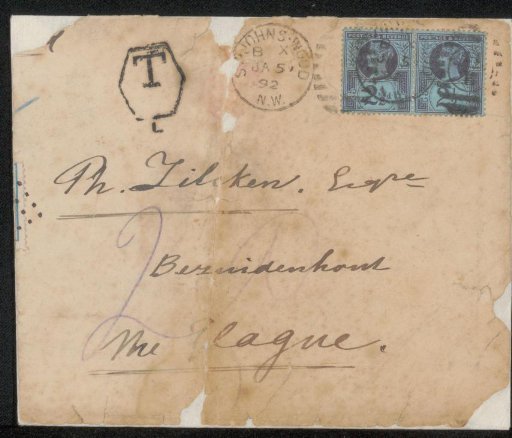 T
L
ST JOHNS WOOD
B X
JA 5
92
N.W.
POSTAGE & REVENUE
Ph. Zilcken. Esqre
Bezuidenhout
The Hague.